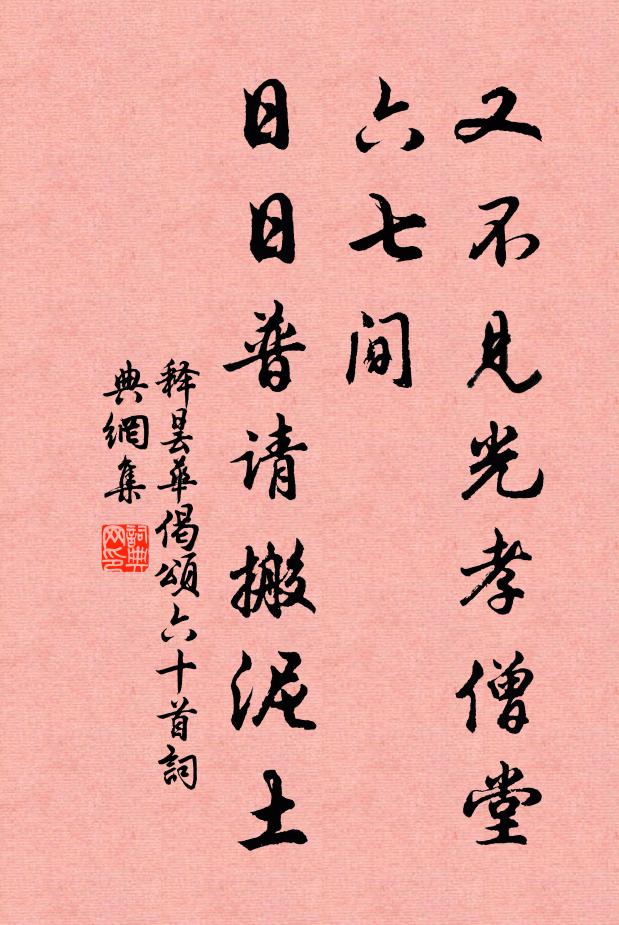 又不見光孝僧堂
六七間
日日普请搬泥土
释曇華偈頌六十首詞
典網集
詞典
网印